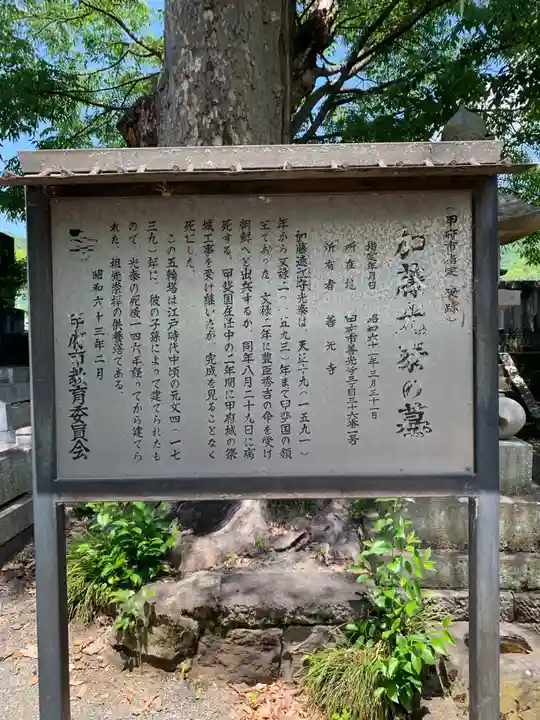 (甲府市指定 史跡)
加藤光泰の墓
指定年月日 昭和六十一年三月三十一日
所在地 甲府市善光寺三丁目三十六番一号
所有者 善光寺
加藤遠江守光泰は、天正十九(一五九一)
年から文禄二(一五九三)年まで甲斐国の領
主であった。文禄二年に豊臣秀吉の命を受け
朝鮮へと出兵するが、同年八月二十九日に病
死する。甲斐国在任中の二年間に甲府城の築
城工事を受け継いだが、完成を見ることなく
死亡した。
この五輪塔は江戸時代中頃の元文四(一七
三九)年に、彼の子孫によって建てられたも
ので、光泰の死後一四六年経ってから建てら
れた、祖先崇拝の供養塔である。
昭和六十三年二月
甲府市教育委員会